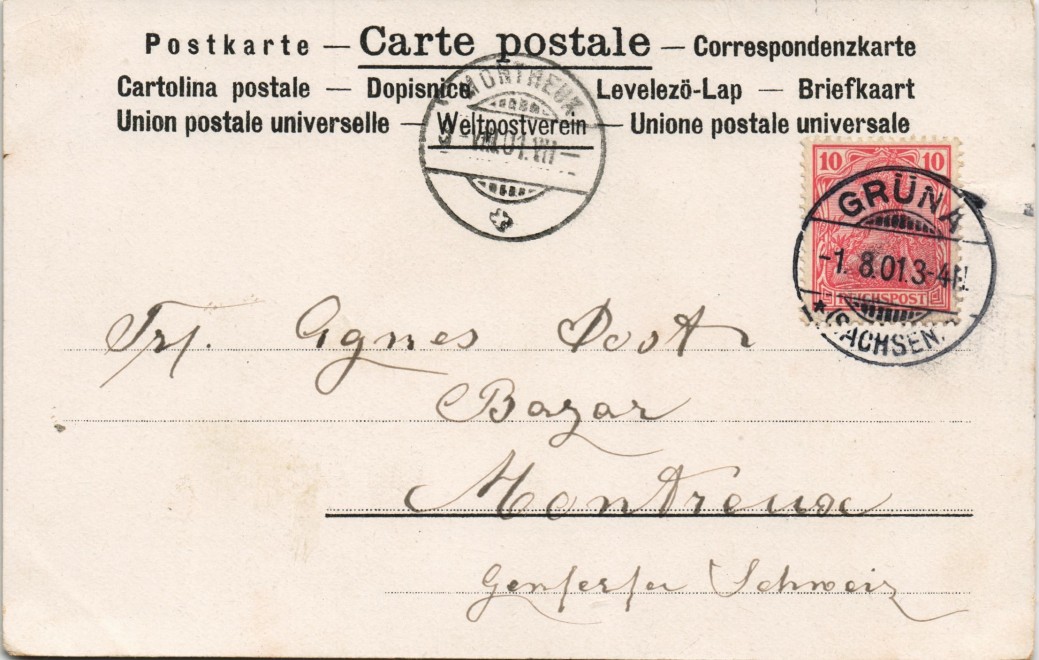 Postkarte — Carte postale — Correspondenzkarte
Cartolina postale — Dopisnice Levelezö-Lap — Briefkaart
Union postale universelle — Weltpostverein — Unione postale universale
MONTREUX
10 10
REICHSPOST
GRÜNA
-1.8.01.3-4N.
*(SACHSEN.)
Frl. Agnes Post
Bazar
Montreux
Genfersee Schweiz